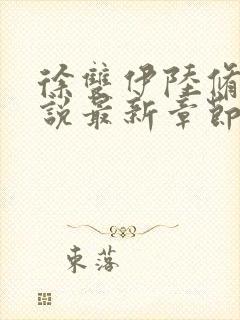 徐雙伊陸脩
說最新章節
東落